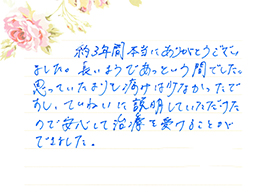 約3年間本当にありがとうござい
ました。長いようであっという間でした。
思っていたより痛みは少なかったで
すし、ていねいに説明していただけた
ので安心して治療を受けることが
できました。